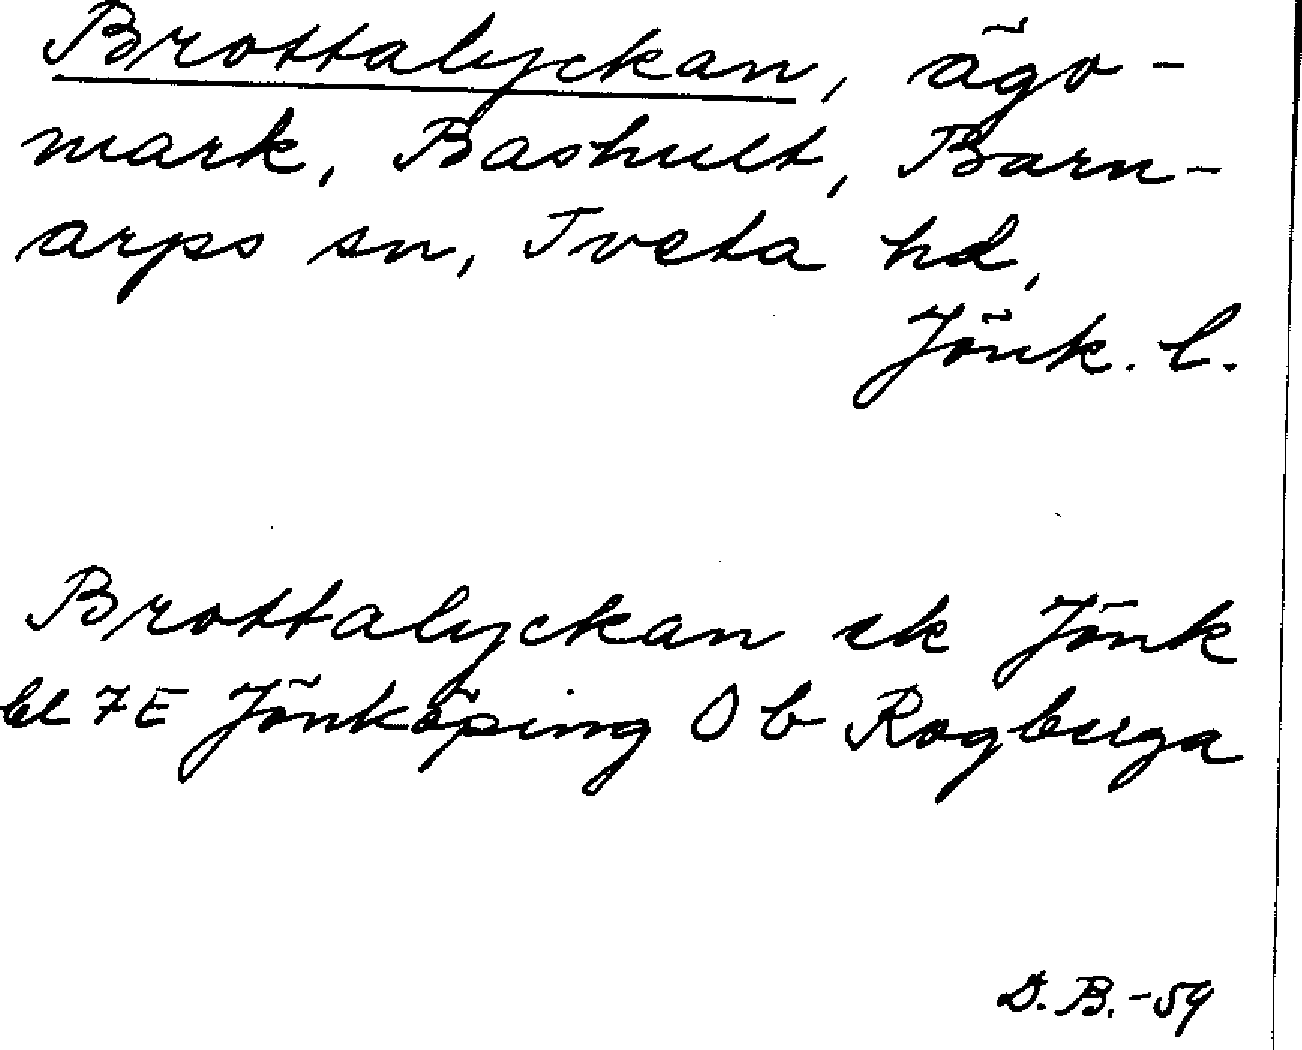 Brottalyckan, ägo-
mark, Bashult, Barn-
arps sn, Tveta hd,
Jönk. l.
Brottalyckan ek Jönk
bl 7E Jönköping Ob Rogberga
D. B. -59